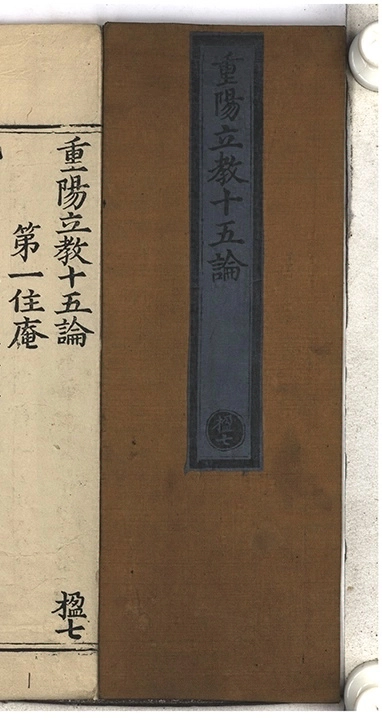 重陽立教十五論
楹七
重陽立教十五論
楹七
第一住庵